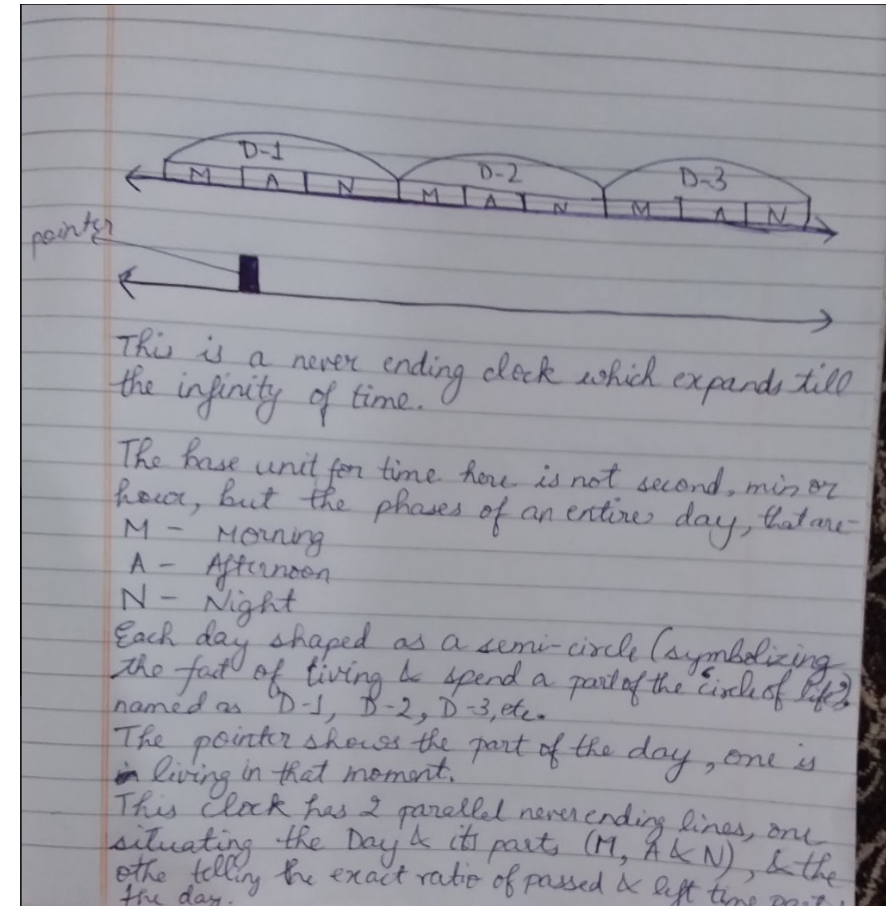 D-1 D-2 D-3
M A N M A N M A N
pointer
This is a never ending clock which expands till
the infinity of time.
The base unit for time here is not second, min or
hour, but the phases of an entire day, that are-
M - Morning
A - Afternoon
N - Night
Each day shaped as a semi-circle (symbolizing
the fact of living & spend a part of the circle of life)
named as D-1, D-2, D-3, etc.
The pointer shows the part of the day, one is
living in that moment.
This clock has 2 parallel never ending lines, one
situating the Day & its parts (M, A & N), & the
othe telling the exact ratio of passed & left time
the day.